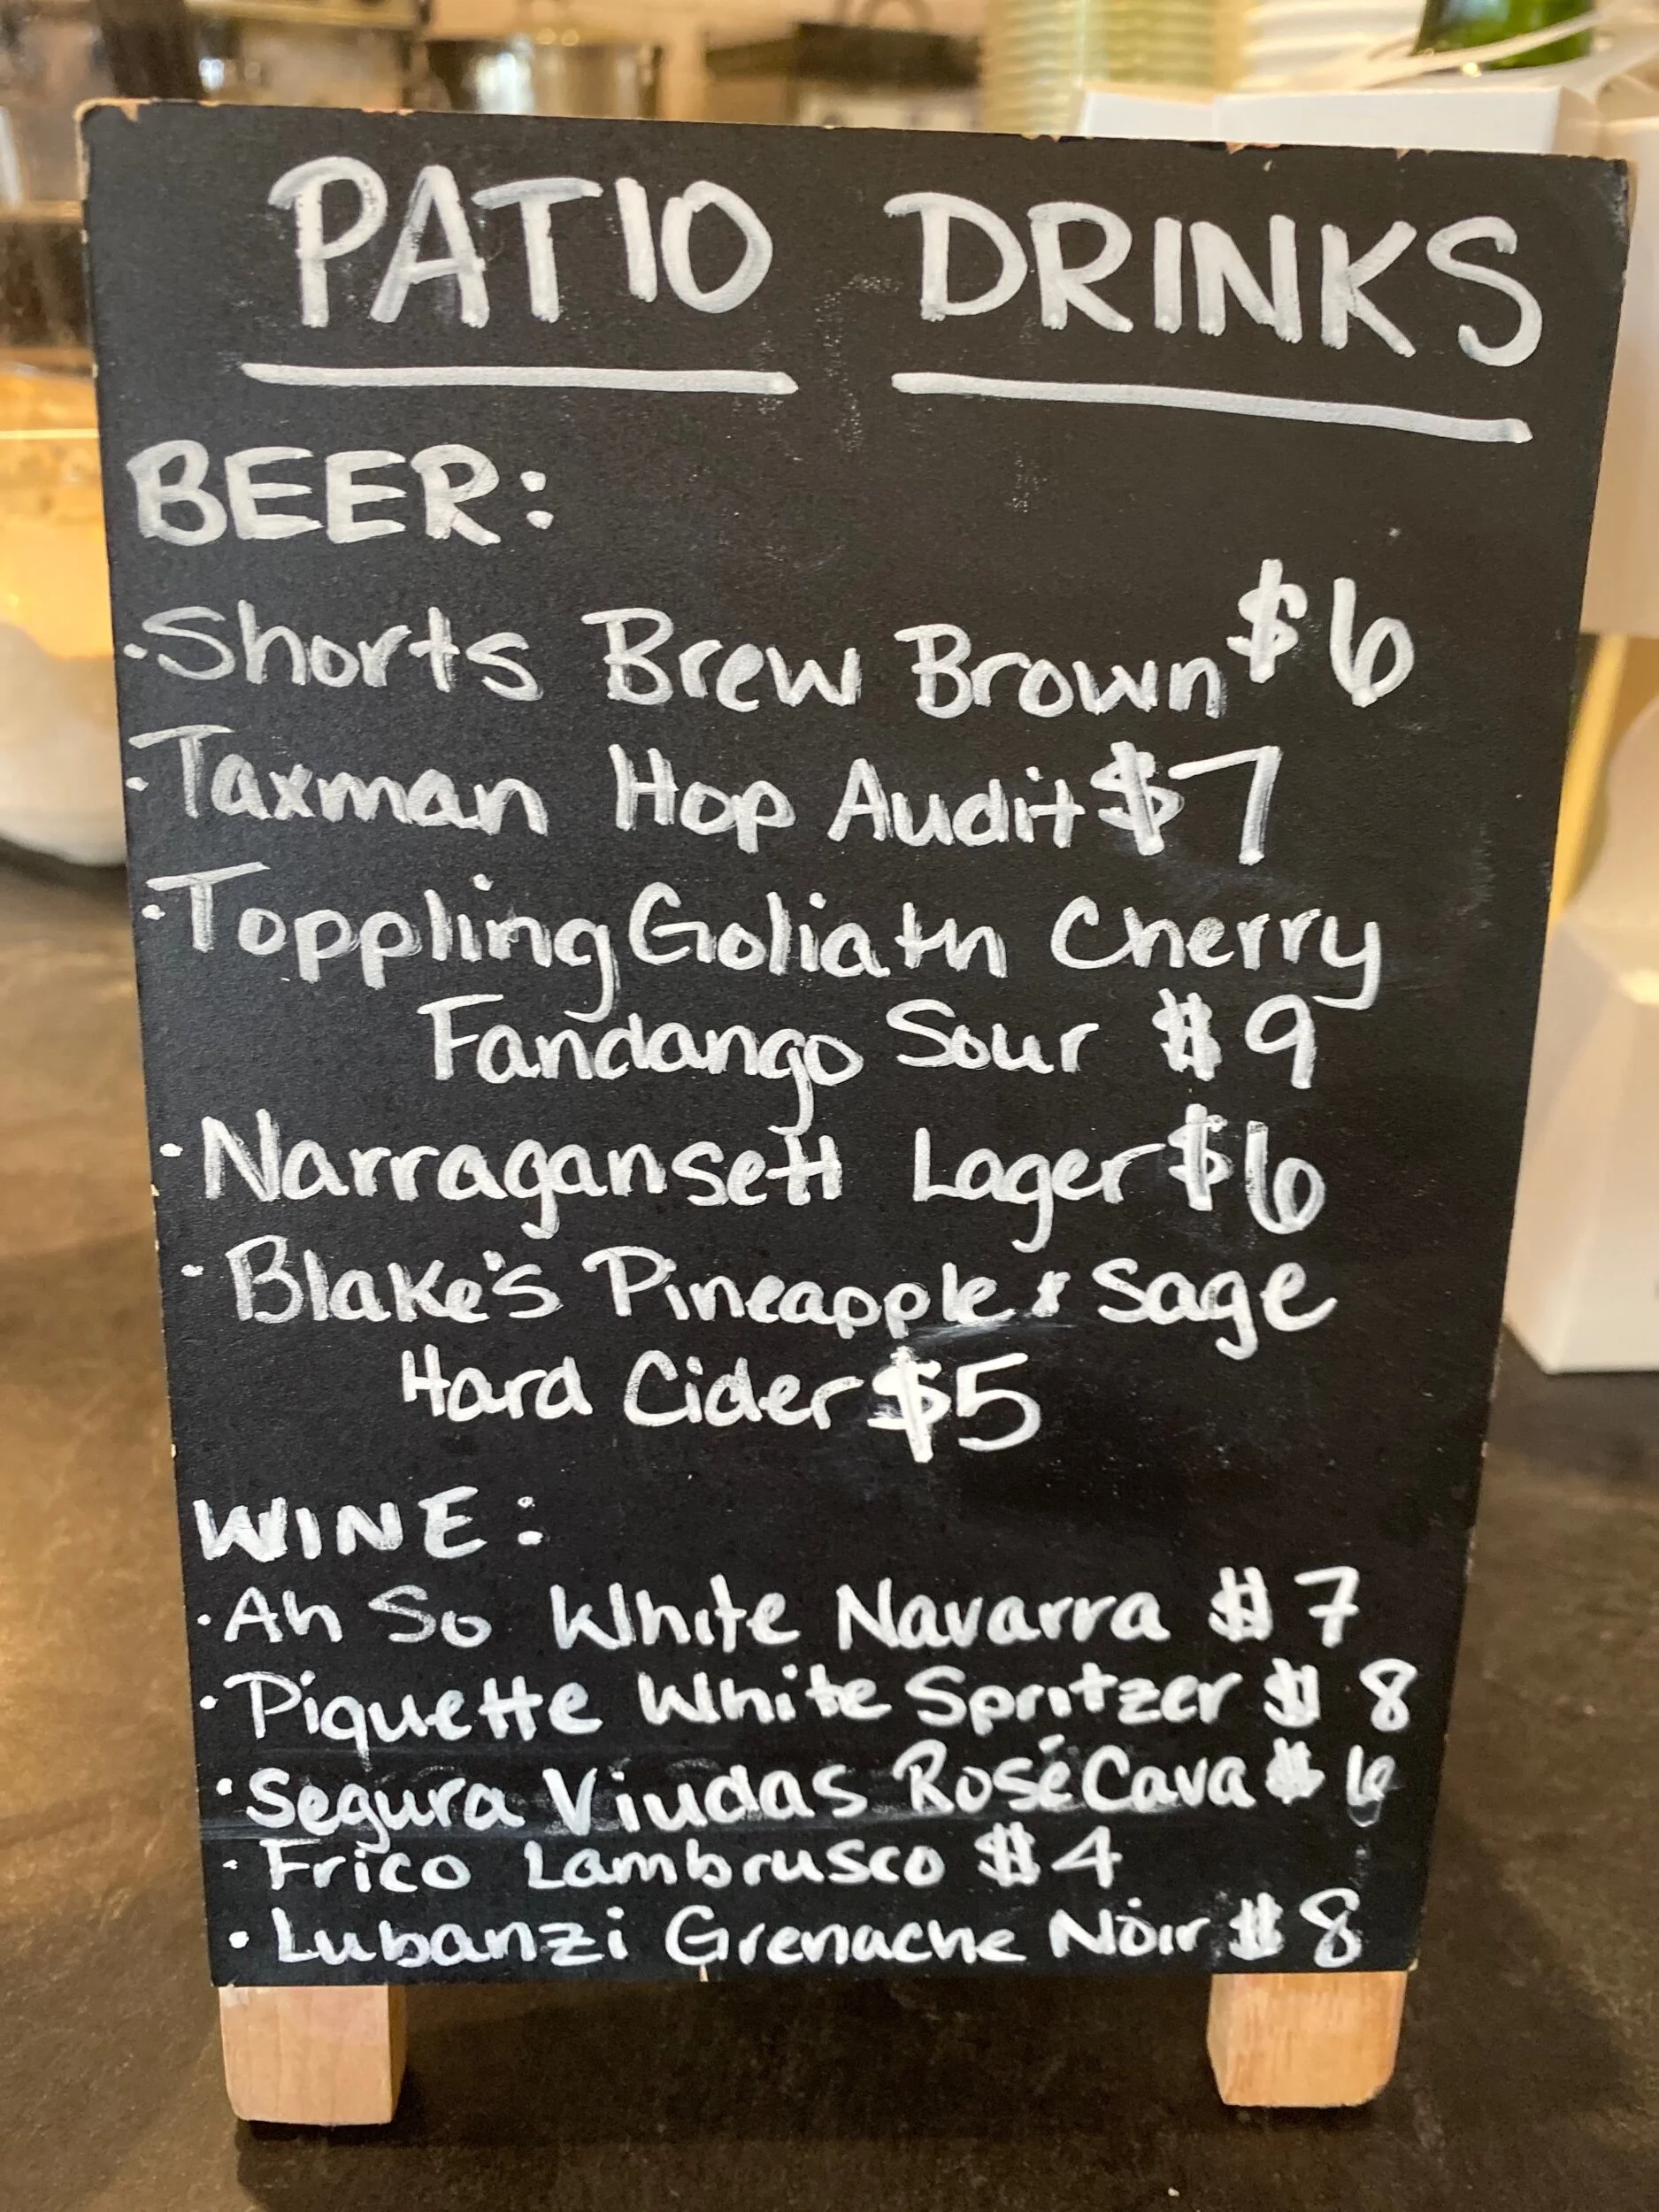 PATIO DRINKS
BEER:
·Shorts Brew Brown $6
·Taxman Hop Audit $7
·Toppling Goliath Cherry
Fandango Sour $9
·Narragansett Lager $6
·Blake's Pineapple & Sage
Hard Cider $5
WINE:
·Ah So White Navarra $7
·Piquette White Spritzer $8
·Segura Viudas Rosé Cava $6
·Frico Lambrusco $4
·Lubanzi Grenache Noir $8